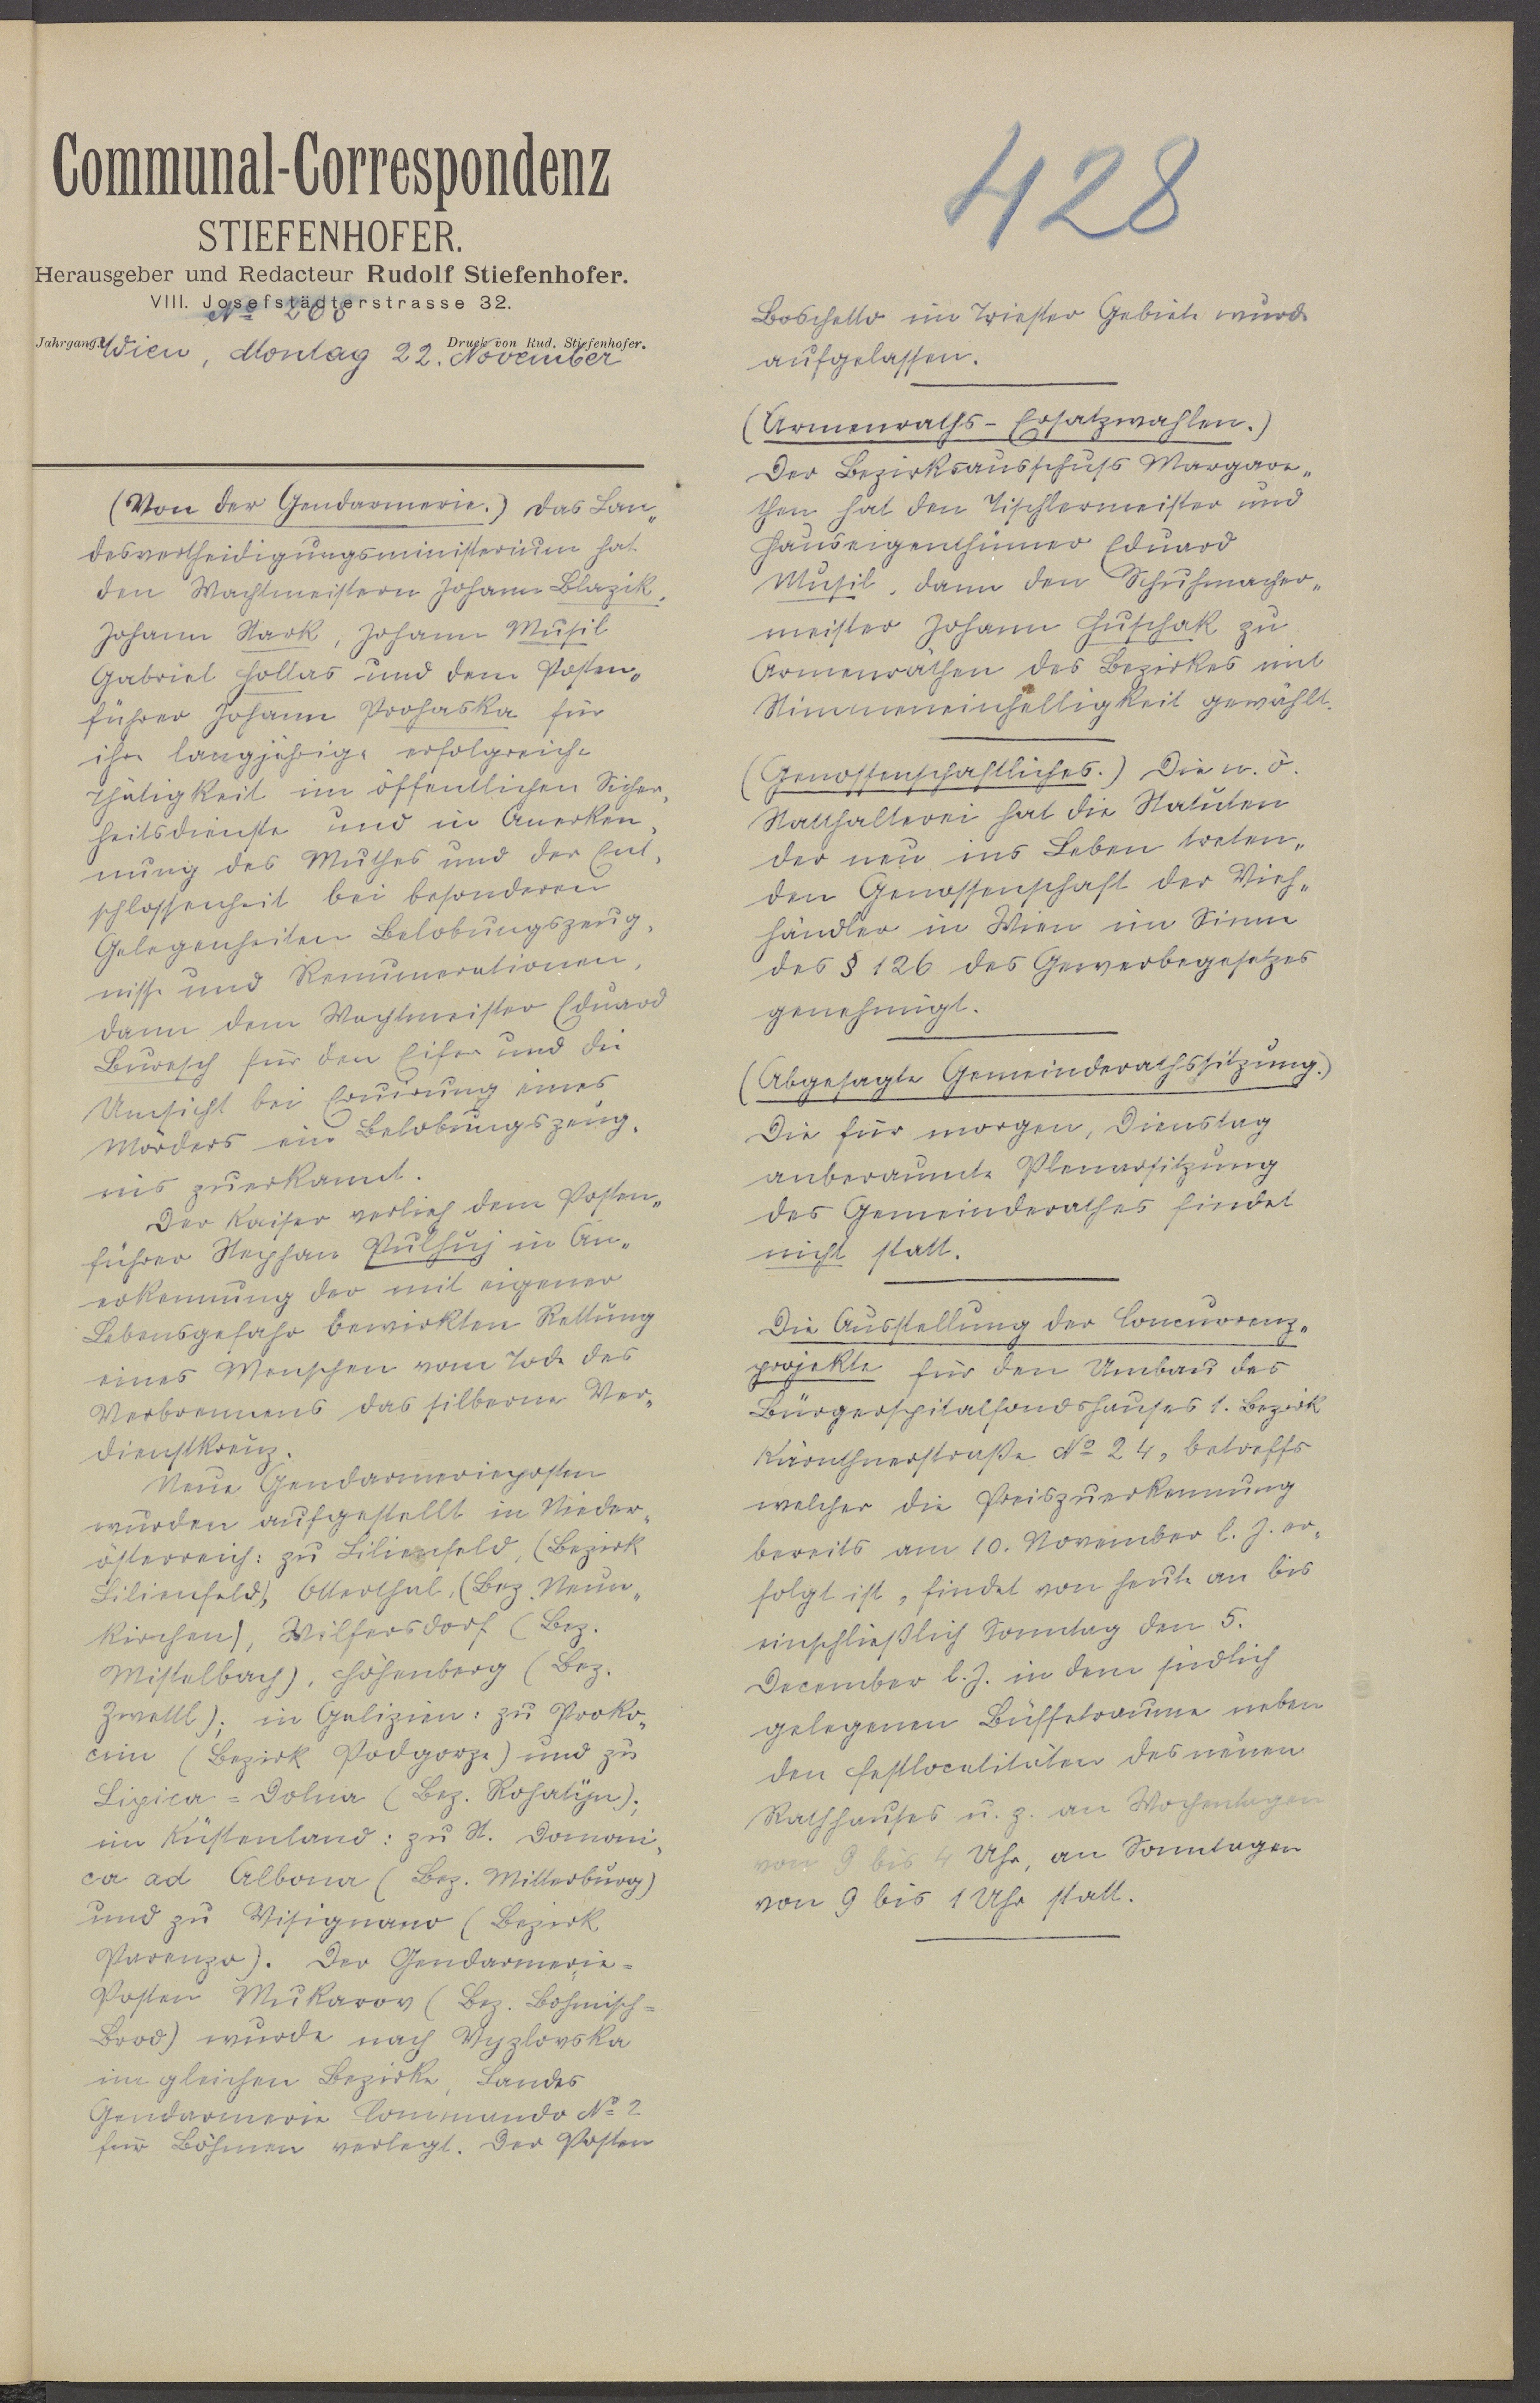 Communal-Correspondenz
STIEFENHOFER.
Herausgeber und Redacteur Rudolf Stiefenhofer.
VIII. Josefstädterstrasse 32.
Jahrgang. Druck von Rud. Stiefenhofer.
Wien, Montag 22. November
(Von der Gendarmerie.) Das Lan„
desvertheidigungsministerium hat
den Wachtmeistern Johann Blazik,
Johann Stark, Johann Musil
Gabriel Hollas und dem Posten„
führer Johann Prohaska für
ihre langjährige erfolgreiche
Thätigkeit im öffentlichen Sicher„
heitsdienste und in Anerken„
nung des Muthes und der Ent„
schlossenheit bei besonderen
Gelegenheiten Belobungszeug„
nisse und Remunerationen,
dann dem Wachtmeister Eduard
Buresch für den Eifer und die
Umsicht bei Eruirung eines
Mörders ein Belobungszeug„
nis zuerkannt.
Der Kaiser verlieh dem Posten„
führer Stephan Pulhuj in An„
erkennung der mit eigener
Lebensgefahr bewirkten Rettung
eines Menschen vom Tode des
Verbrennens das silberne Ver„
dienstkreuz.
Neue Gendarmerieposten
wurden aufgestellt in Nieder„
österreich: zu Lilienfeld, (Bezirk
Lilienfeld), Otterthal, (Bez. Neun„
kirchen), Wilfersdorf (Bez.
Mistelbach), Höhenberg (Bez.
Zwettl); in Galizien: zu Proko„
cim (Bezirk Podgorze) und zu
Lipica=Dolna (Bez. Rohatyn);
im Küstenland: zu St. Domoni„
ca ad Albona (Bez. Mitterburg)
und zu Visignano (Bezirk
Parenzo). Der Gendarmerie=
Posten Mukarov (Bez. Böhmisch=
Brod) wurde nach Vyzlovska
im gleichen Bezirke, Landes
Gendarmerie Commando No 2
für Böhmen verlegt. Der Posten
428
Boschetto im Triester Gebiete wurde
aufgelassen.
(Armenraths-Ersatzwahlen.)
Der Bezirksausschuss Margare„
then hat den Tischlermeister und
Hauseigenthümer Eduard
Musil, dann den Schuhmacher„
meister Johann Huschak zu
Armenräthen des Bezirkes mit
Stimmeneinhelligkeit gewählt.
(Genossenschaftliches.) Die n. ö.
Statthalterei hat die Statuten
der neu ins Leben treten„
den Genossenschaft der Vieh„
händler in Wien im Sinne
des § 126 des Gewerbegesetzes
genehmigt.
(Abgesagte Gemeinderathssitzung.)
Die für morgen, Dienstag
anberaumte Plenarsitzung
des Gemeinderathes findet
nicht statt.
Die Ausstellung der Concurrenz„
projekte für den Umbau des
Bürgerspitalfondshauses 1. Bezirk
Kärnthnerstraße No 24, betreffs
welcher die Preiszuerkennung
bereits am 10. November l. J. er„
folgt ist, findet von heute an bis
einschließlich Sonntag den 5.
December l. J. in dem südlich
gelegenen Büffetraume neben
den Festlocalitäten des neuen
Rathhauses u. z. an Wochentagen
von 9 bis 4 Uhr, an Sonntagen
von 9 bis 1 Uhr statt.